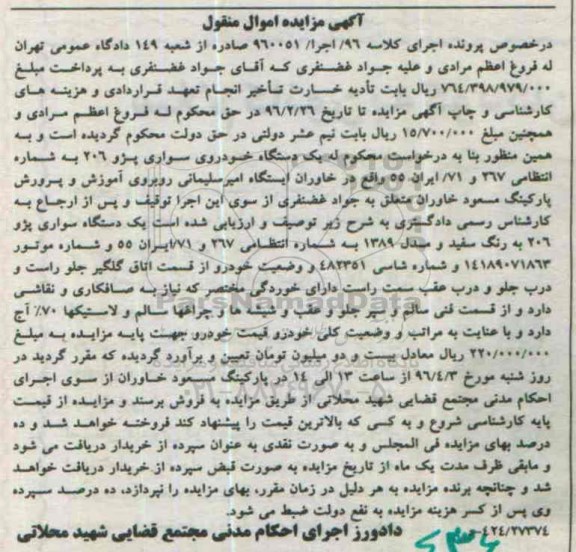 آگهی مزایده اموال منقول
درخصوص پرونده اجرای کلاسه ۹۶/ اجرا/ ۹۶۰۰۵۱ صادره از شعبه ۱۴۹ دادگاه عمومی تهران
له فروغ اعظم مرادی و علیه جواد غضنفری که آقای جواد غضنفری به پرداخت مبلغ
۷۶۴/۳۹۸/۹۷۹/۰۰۰ ریال بابت تأدیه خسارت تأخیر انجام تعهد قراردادی و هزینه های
کارشناسی و چاپ آگهی مزایده تا تاریخ ۹۶/۲/۲۶ در حق محکوم له فروغ اعظم مرادی و
همچنین مبلغ ۱۵/۷۰۰/۰۰۰ ریال بابت نیم عشر دولتی در حق دولت محکوم گردیده است و به
همین منظور بنا به درخواست محکوم له یک دستگاه خودروی سواری پژو ۲۰۶ به شماره
انتظامی ۲۶۷ و ۷۱/ ایران ۵۵ واقع در خاوران ایستگاه امیرسلیمانی روبروی آموزش و پرورش
پارکینگ مسعود خاوران متعلق به جواد غضنفری از سوی این اجرا توقیف و پس از ارجاع به
کارشناس رسمی دادگستری به شرح زیر توصیف و ارزیابی شده است یک دستگاه سواری پژو
۲۰۶ به رنگ سفید و مدل ۱۳۸۹ به شماره انتظامی ۲۶۷ و ۷۱/ایران ۵۵ و شماره موتور
۱۴۱۸۹۰۷۱۸۶۳ و شماره شاسی ۴۸۲۳۵۱ و وضعیت خودرو از قسمت اتاق گلگیر جلو راست و
درب جلو و درب عقب سمت راست دارای خوردگی مختصر که نیاز به صافکاری و نقاشی
دارد و از قسمت فنی سالم و سپر جلو و عقب و شیشه ها و چراغها سالم و لاستیکها ۷۰٪ آج
دارد و با عنایت به مراتب و وضعیت کلی خودرو قیمت خودرو جهت پایه مزایده به مبلغ
۲۲۰/۰۰۰/۰۰۰ ریال معادل بیست و دو میلیون تومان تعیین و برآورد گردیده که مقرر گردید در
روز شنبه مورخ ۹۶/۴/۳ از ساعت ۱۳ الی ۱۴ در پارکینگ مسعود خاوران از سوی اجرای
احکام مدنی مجتمع قضایی شهید محلاتی از طریق مزایده به فروش برسند و مزایده از قیمت
پایه کارشناسی شروع و به کسی که بالاترین قیمت را پیشنهاد کند فروخته خواهد شد و ده
درصد بهای مزایده فی المجلس و به صورت نقدی به عنوان سپرده از خریدار دریافت می شود
و مابقی ظرف مدت یک ماه از تاریخ مزایده به صورت قبض سپرده از خریدار دریافت خواهد
شد و چنانچه برنده مزایده به هر دلیل در زمان مقرر، بهای مزایده را نپردازد، ده درصد سپرده
وی پس از کسر هزینه مزایده به نفع دولت ضبط می شود.
۴۲۴/۲۷۳۷۴ دادورز اجرای احکام مدنی مجتمع قضایی شهید محلاتی
ParsNamadData